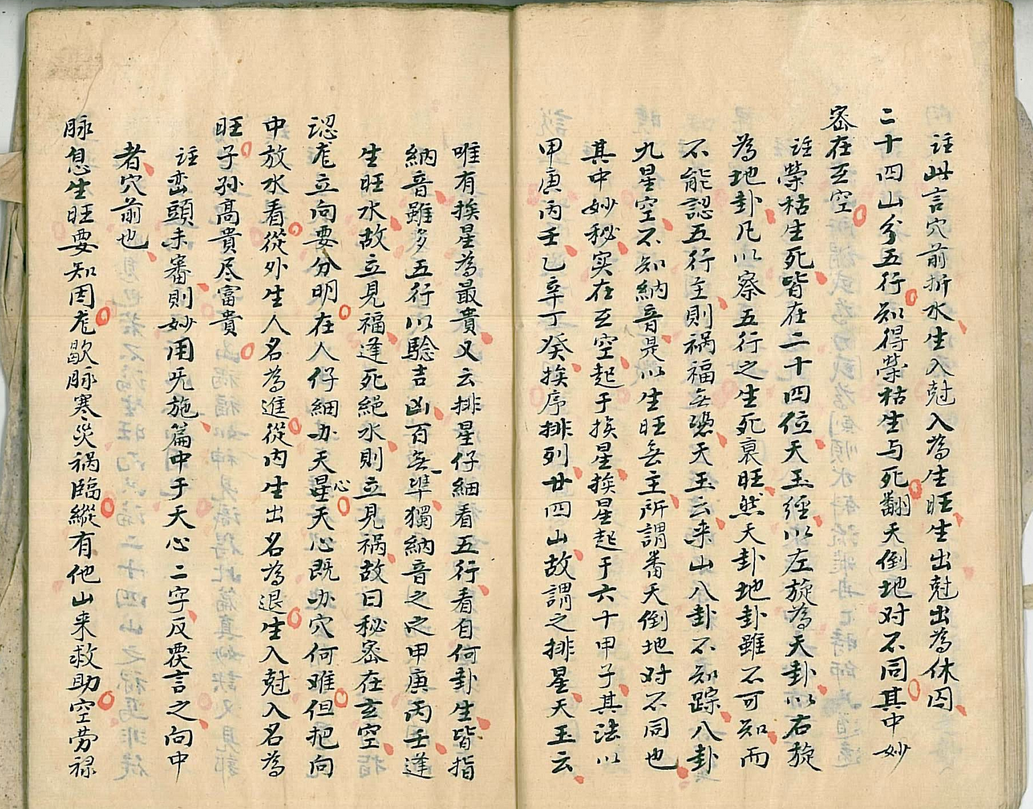 註此言穴前折水生入尅入為生旺生出尅出為休囚
二十四山分五行知得榮枯生与死翻天倒地对不同其中妙
密在玄空
註榮枯生死皆在二十四位天玉經以左旋為天卦以右旋
為地卦凡以察五行之生死衰旺然天卦地卦雖不可知而
不能認五行主則祸福無憑天玉云来山八卦不知踪八卦
九星空不知納音是以生旺無主所謂番天倒地对不同也
其中妙秘实在玄空起于挨星挨星起于六十甲子其法以
甲庚丙壬乙辛丁癸挨序排列廿四山故謂之排星天玉云
唯有挨星為最貴又云排星仔細看五行看自何卦生皆指
納音雖多五行以騐吉凶百無準獨納音之之甲庚丙壬逢
生旺水故立見福逢死絕水則立見祸故曰秘密在玄空
認龙立向要分明在人仔細办天星心天心既办穴何难但把向
中放水看從外生人名為進從內生出名為退生入尅入名為
旺子孫髙貴尽富貴
註峦頭未審則妙用旡施篇中于天心二字反覆言之向中
者穴前也
脉息生旺要知因龙歇脉寒災祸臨縱有他山来救助空劳禄